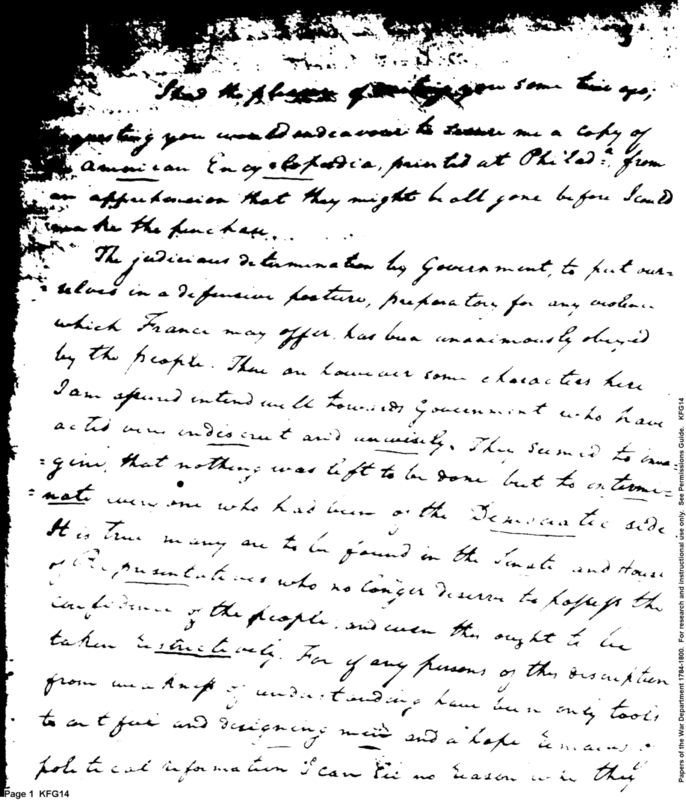 3
I had the pleasure of writing you some time ago,
requesting you would endeavour to secure me a copy of
American Encyclopaedia, printed at Philad:a from
an apprehension that they might be all gone before I could
make the purchase.
The judicious determination by Government, to put our=
=selves in a defensive posture, preparatory for any violence
which France may offer has been unanimously obeyed
by the people. There are however some characters here
I am assured intend well towards Government who have
acted very indiscreet and unwisely. They seemed to ima=
=gine, that nothing was left to be done but to extermi=
=nate every one who had been of the Democratic side
It is true many are to be found in the Senate and House
of Representatives who no longer deserve to possess the
confidence of the people, and even this ought to be
taken restrictively. For if any persons of this discription
from weakness of understanding have been only tools
to artful and designing men and a hope remains
political reformation I can see no reason why they
Page 1 KFG14
Papers of the War Department 1784-1800. For research and instructional use only. See Permissions Guide. KFG14